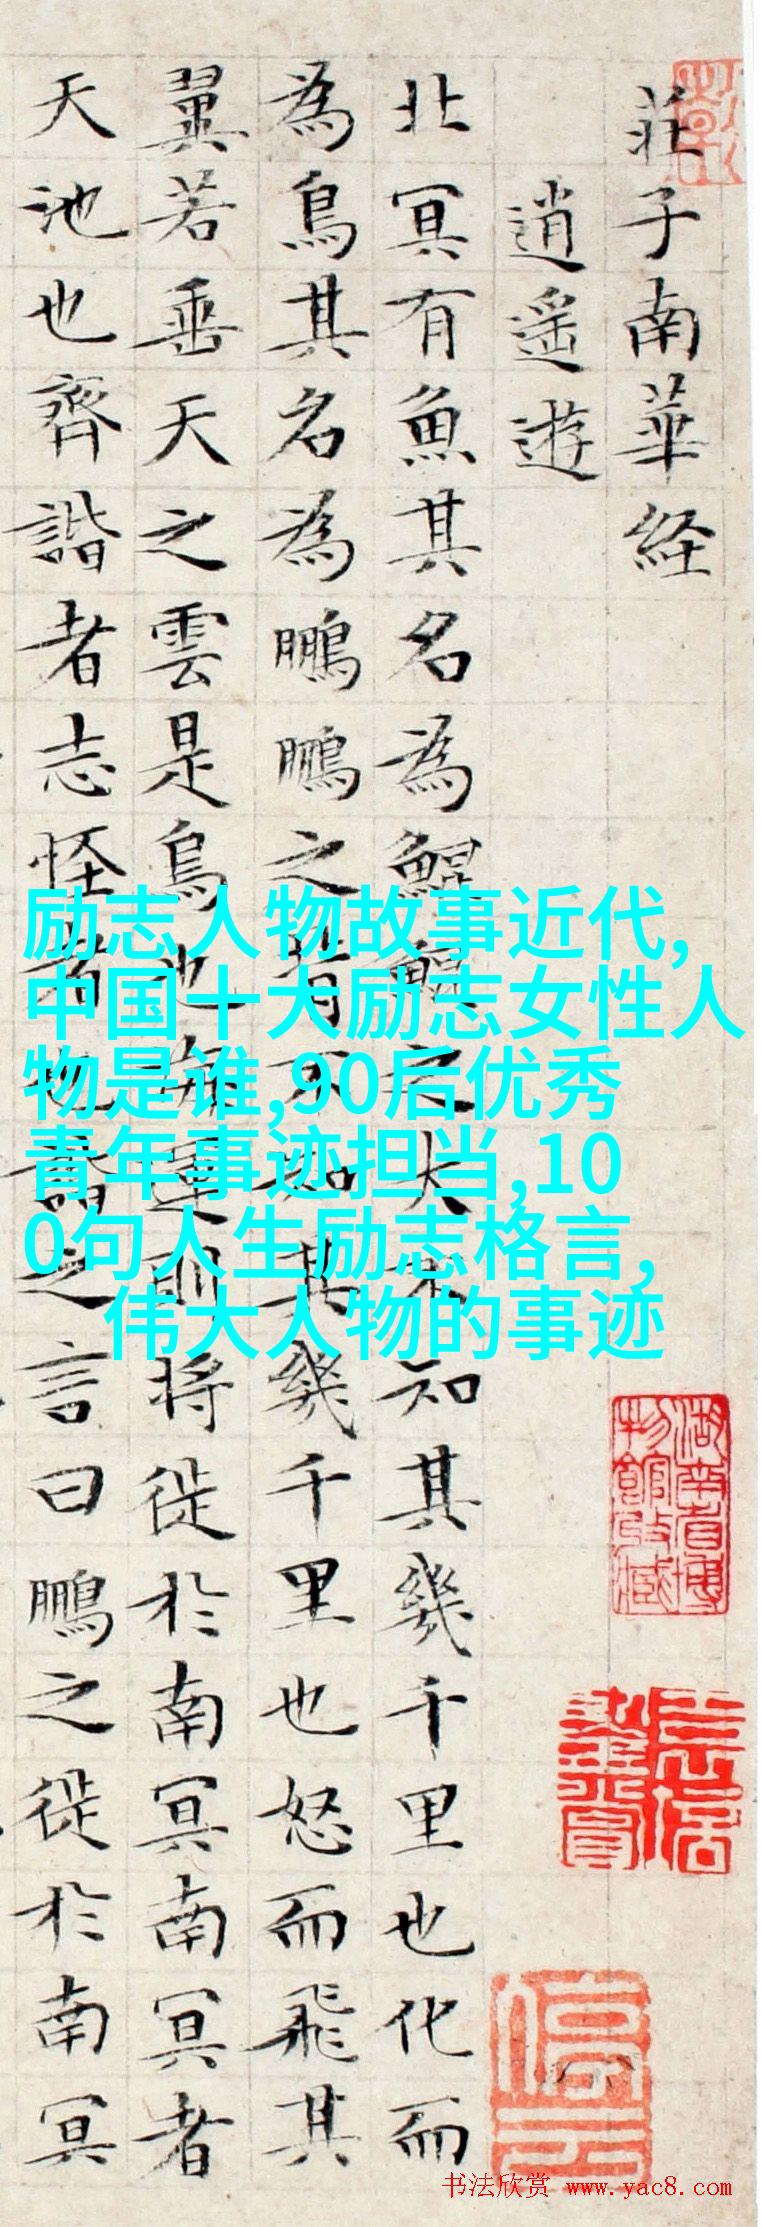 莊子南華経
逍遥遊
北冥有魚其名為鯤鯤之大不知其幾千里也化而
為鳥其名為鵬鵬之背不知其幾千里也怒而飛其
翼若垂天之雲是鳥也海運則将徙於南冥南冥者
天池也齊諧者志怪者也諧之言曰鵬之徙於南冥
励志人物故事近代,
中国十大励志女性人
物是谁,90后优秀
青年事迹担当,10
0句人生励志格言,
伟大人物的事迹
湖南省博
物館收藏
停云
书法欣赏 www.yac8.com